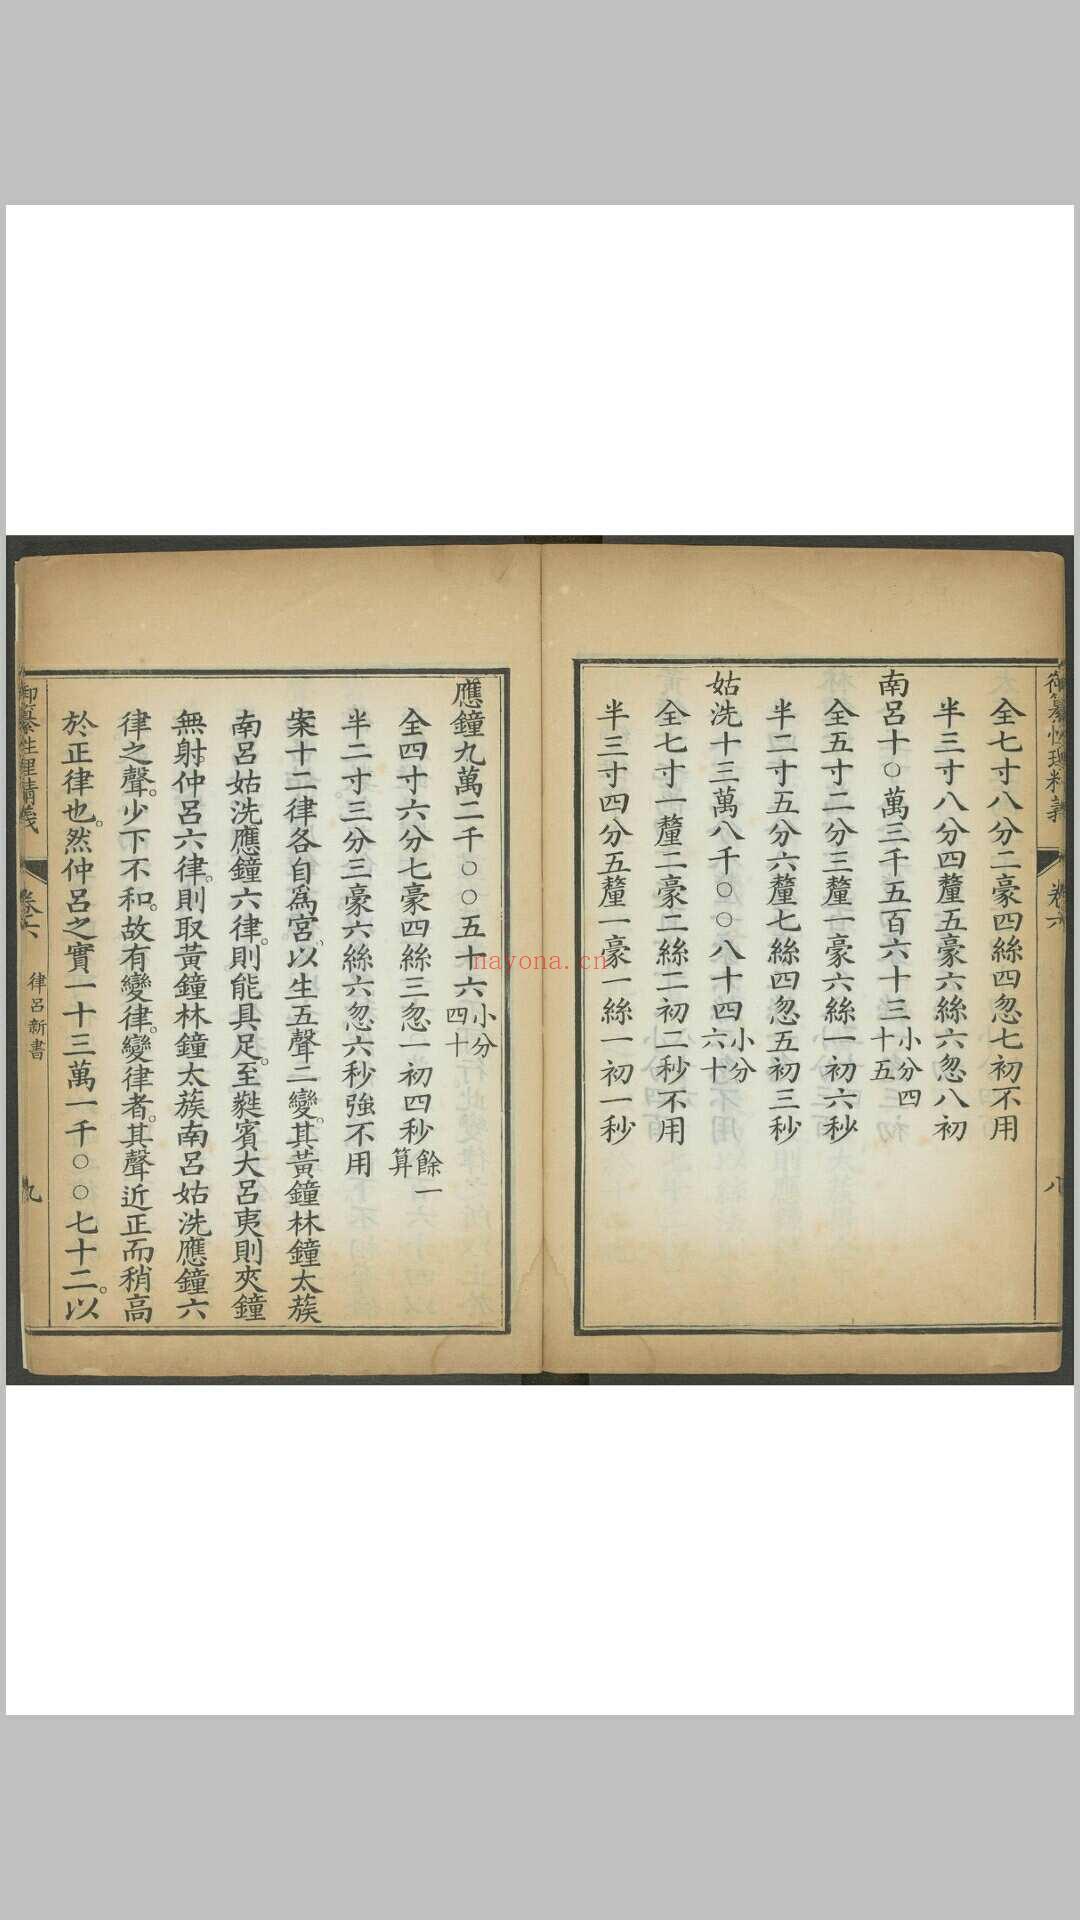 御纂性理精義
卷六
八
全七寸八分二豪四絲四忽七初不用
半三寸八分四釐五豪六絲六忽八初
南呂十○萬三千五百六十三小分四十五
全五寸二分三釐一豪六絲一初六秒
半二寸五分六釐七絲四忽五初三秒
姑洗十三萬八千○○八十四小分六十
全七寸一釐二豪二絲二初二秒不用
半三寸四分五釐一豪一絲一初一秒
應鐘九萬二千○○五十六小分四十
全四寸六分七豪四絲三忽一初四秒餘一算
半二寸三分三豪六絲六忽六秒強不用
案十二律各自爲宮、以生五聲二變。其黃鐘林鐘太蔟
南呂姑洗應鐘六律。則能具足。至蕤賓大呂夷則夾鐘
無射。仲呂六律。則取黃鐘林鐘太蔟南呂姑洗應鐘六
律之聲。少下不和。故有變律。變律者。其聲近正而稍高
於正律也。然仲呂之實一十三萬一千○○七十二。以
御纂性理精義
卷六
律呂新書
九
nayona.cn